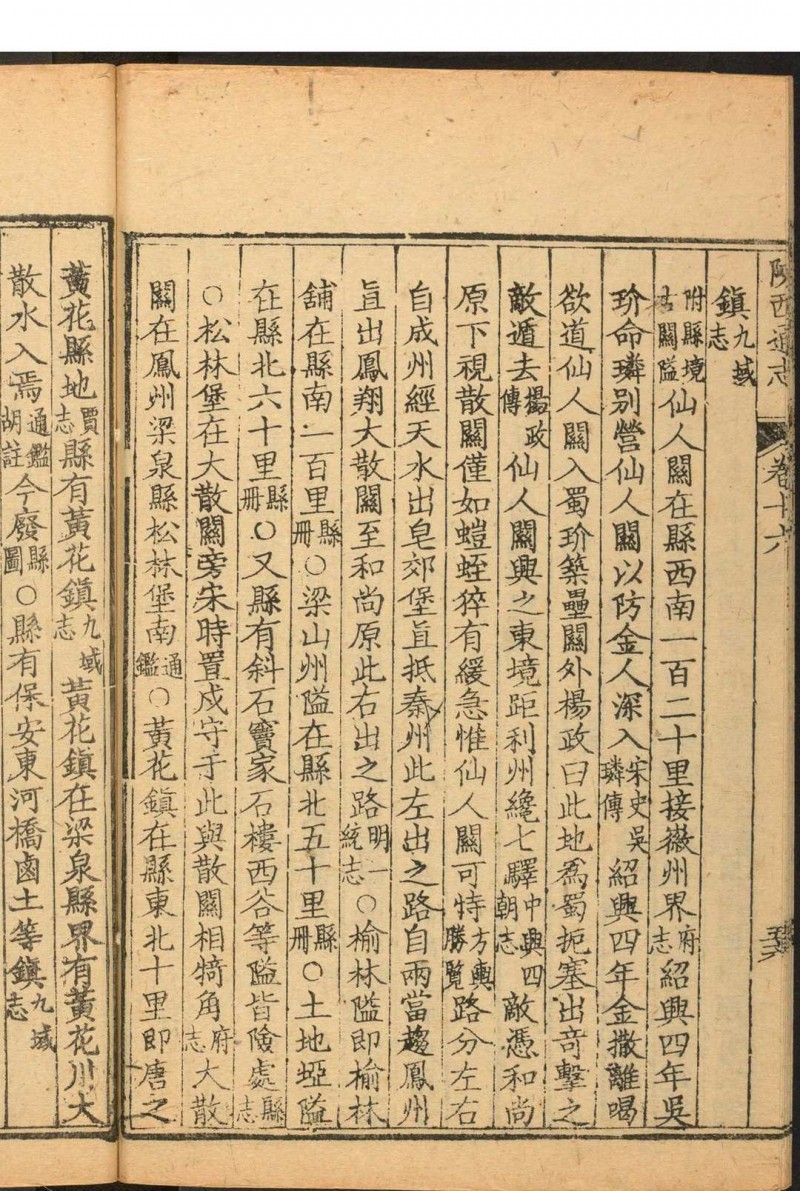 陝西通志 卷十六
鎮九域志
附縣境古關隘仙人關在縣西南一百二十里接徽州界府志紹興四年吳
玠命璘別營仙人關以防金人深入宋史吳璘傳紹興四年金撒離喝
欲道仙人關入蜀玠築壘關外楊政曰此地為蜀扼塞出竒擊之
敵遁去楊政傳仙人關興之東境距利州纔七驛中興四朝志敵憑和尚
原下視散關僅如螘蛭猝有緩急惟仙人關可恃方輿勝覽路分左右
自成州經天水出皂郊堡直抵秦州此左出之路自兩當趨鳳州
直出鳳翔大散關至和尚原此右出之路明一統志○榆林隘即榆林
舖在縣南一百里縣冊○梁山州隘在縣北五十里縣冊○土地埡隘
在縣北六十里縣冊○又縣有斜石竇家石樓西谷等隘皆險處縣志
○松林堡在大散關旁宋時置戍守于此與散關相犄角府志大散
關在鳳州梁泉縣松林堡南通鑑○黃花鎮在縣東北十里即唐之
黃花縣地賈志縣有黃花鎮九域志黃花鎮在梁泉縣界有黃花川大
散水入焉通鑑胡註今廢縣圖○縣有保安東河橋鹵土等鎮九域志